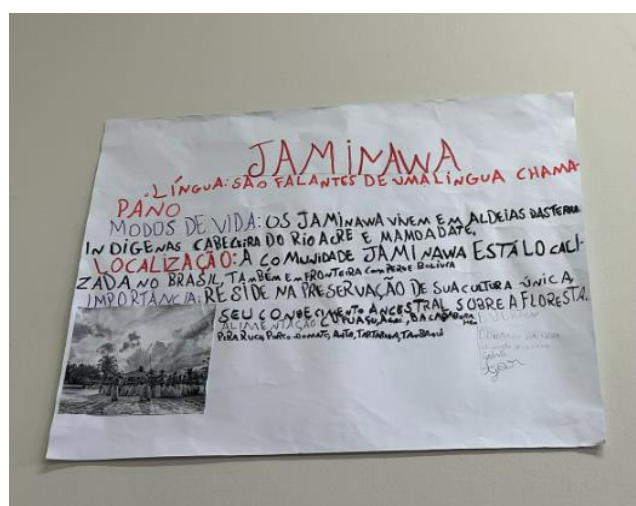 JAMINAWA
. LÍNGUA: SÃO FALANTES DE UMA LÍNGUA CHAMA-
PANO
MODOS DE VIDA: OS JAMINAWA VIVEM EM ALDEIAS DAS TERRA
INDIGENAS CABECEIRA DO RIO ACRE E MAMOADATE.
LOCALIZAÇÃO: A COMUNIDADE JAMINAWA ESTÁ LOCALI-
ZADA NO BRASIL, TAMBÉM EM FRONTEIRA COM PERU E BOLIVIA
IMPORTÂNCIA: RESIDE NA PRESERVAÇÃO DE SUA CULTURA ÚNICA,
SEU CONHECIMENTO ANCESTRAL SOBRE A FLORESTA.
ALIMENTAÇÃO CUPUAÇU, AÇAÍ, BACABA
PIRARUCU, PORCO-DO-MATO, ANTA, TARTARUGA, TAMBAQUI